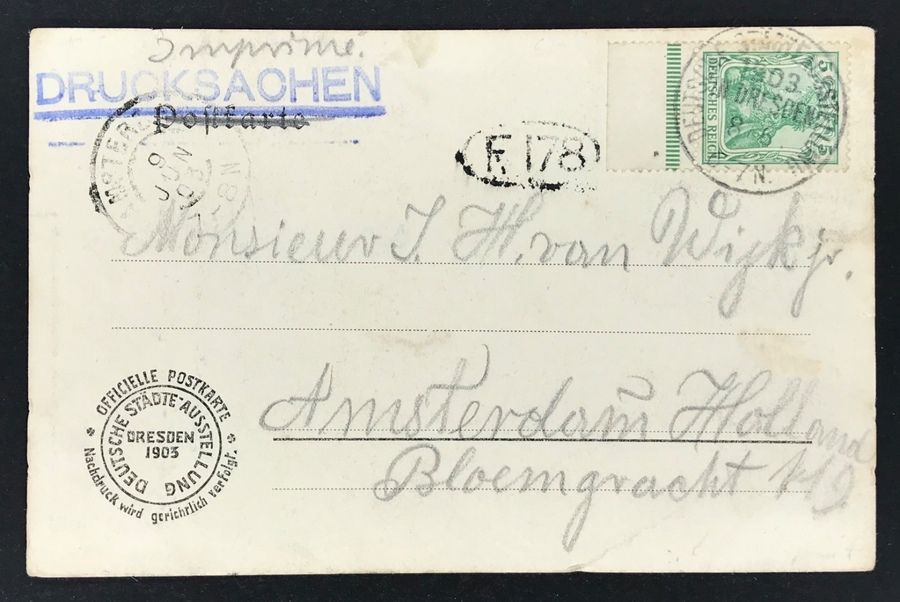 Imprimé.
DRUCKSACHEN
Postkarte
F. 178
5
DEUTSCHES REICH
DRESDEN
AMSTERD
Monsieur J. H. van Wijk jr.
Amsterdam Holland
Bloemgracht
OFFICIELLE POSTKARTE
DEUTSCHE STÄDTE-AUSSTELLUNG
DRESDEN
1903
Nachdruck wird gerichtlich verfolgt.